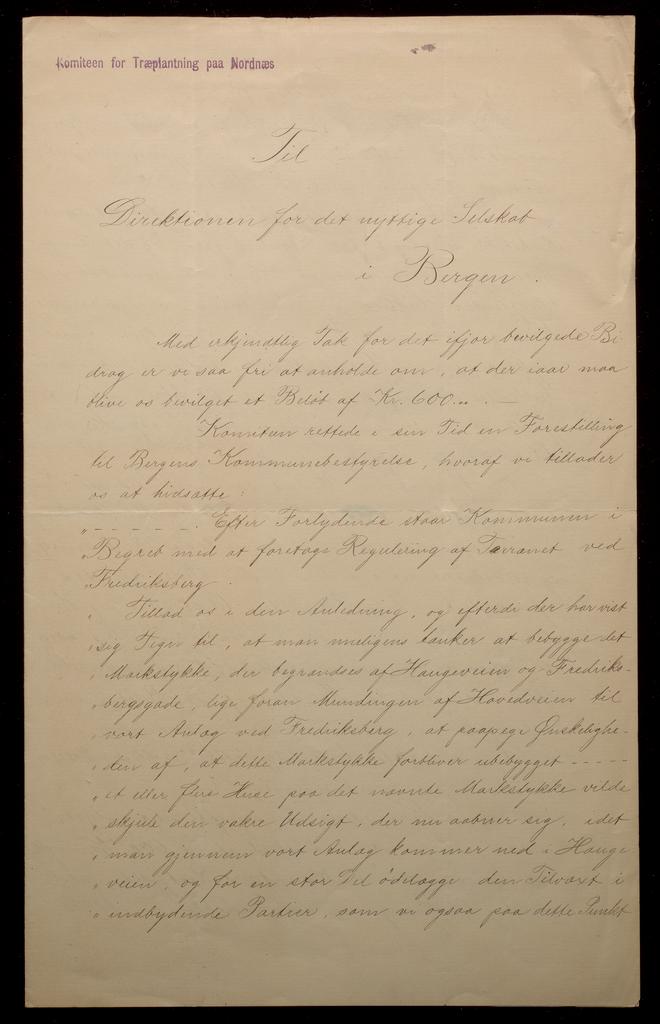 Komiteen for Træplantning paa Nordnæs
Til
Direktionen for det nyttige Selskab
i Bergen.
Med erkjendtlig Tak for det ifjor bevilgede Bi
drag er vi saa fri at anholde om, at der iaar maa
blive os bevilget et Beløb af Kr. 600 „. —
Komiteen rettede i sin Tid en Forestilling
til Bergens Kommunebestyrelse, hvoraf vi tillader
os at hidsætte:
„ - - - - - . Efter Forlydende staar Kommunen i
„Begreb med at foretage Regulering af Terrænet ved
„Fredriksberg.
„ Tillad os i den Anledning, og efterdi der har vist
„sig Tegn til, at man muligens tænker at bebygge det
„Markstykke, der begrændses af Haugeveien og Fredriks-
„bergsgade, lige foran Mundingen af Hovedveien til
„vort Anlæg ved Fredriksberg, at paapege Ønskelighe-
„den af, at dette Markstykke forbliver ubebygget - - - - -
„et eller flere Huse paa det nævnte Markstykke vilde
„skjule den vakre Udsigt, der nu aabner sig, idet
„man gjennem vort Anlæg kommer ned i Hauge
„veien, og for en stor Del ødelægge den Tilvæxt i
„indbydende Partier, som vi ogsaa paa dette Punkt